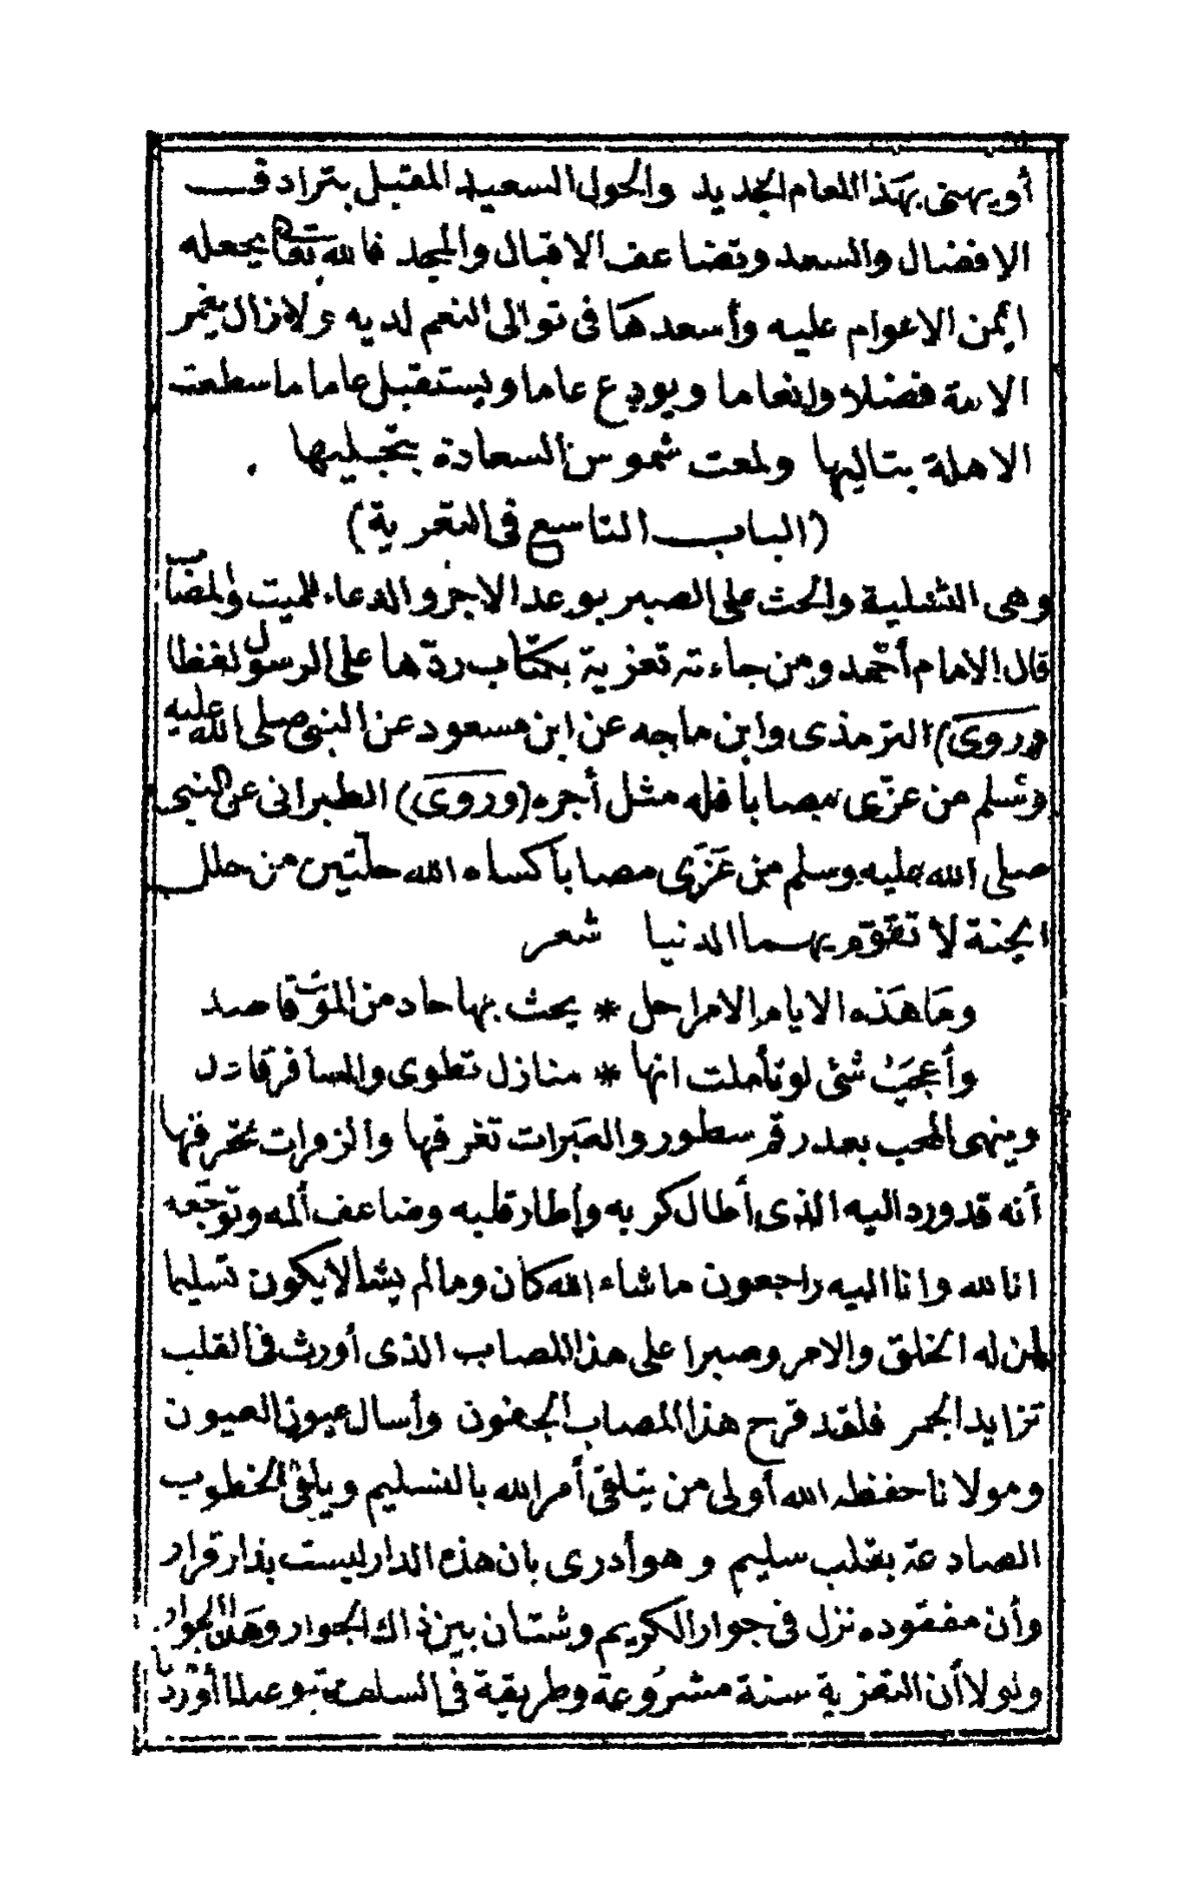 أو يهنى بهذا العام الجديد والحول السعيد المقبل بترادف
الافضال والسعد وتضاعف الاقبال والمجد فالله تعا يجعله
ايمن الاعوام عليه وأسعدها فى توالى النعم لديه ولازال يغمر
الامة فضلا وانعاما ويودع عاما ويستقبل عاما ما سطعت
الاهلة بتاليها ولمعت شموس السعادة بتجليها .
(الباب التاسع فى التعزية)
وهى التسلية والحث على الصبر بوعد الاجر والدعاء للميت والمصاب
قال الامام أحمد ومن جاءته تعزية بكتاب ردّها على الرسول لفظا
(وروى) الترمذى وابن ماجه عن ابن مسعود عن النبى صلى الله عليه
وسلم من عزّى مصابا فله مثل أجره (وروى) الطبرانى عن النبى
صلى الله عليه وسلم من عَزَّى مصابا كساه الله حلتين من حلل
الجنة لا تقوم بهما الدنيا شعر
وما هذه الايام الا مراحل * يحث بها حاد من الموت قاصد
وأعجب شئ لو تأملت انها * منازل تطوى والمسافر قاعد
وينهى المحب بعد رقم سطور والعبرات تغرقها والزفرات تحرقها
أنه قد ورد اليه الذى أطال كربه وأطار قلبه وضاعف ألمه وتوجعه
انا لله وانا اليه راجعون ما شاء الله كان وما لم يشأ لا يكون تسليما
لمن له الخلق والامر وصبرا على هذا المصاب الذى أورث فى القلب
تزايد الجمر فلقد قرح هذا المصاب الجفون وأسال عيون العيون
ومولانا حفظه الله أولى من يتلقى أمر الله بالتسليم ويلقى الخطوب
الصادعة بقلب سليم وهو أدرى بان هذه الدار ليست بدار قرار
وأن مفقوده نزل فى جوار الكريم وشتان بين ذاك الجوار وهذا الجوار
ولولا أن التعزية سنة مشروعة وطريقة فى السلف متبوعة لما أوردنا